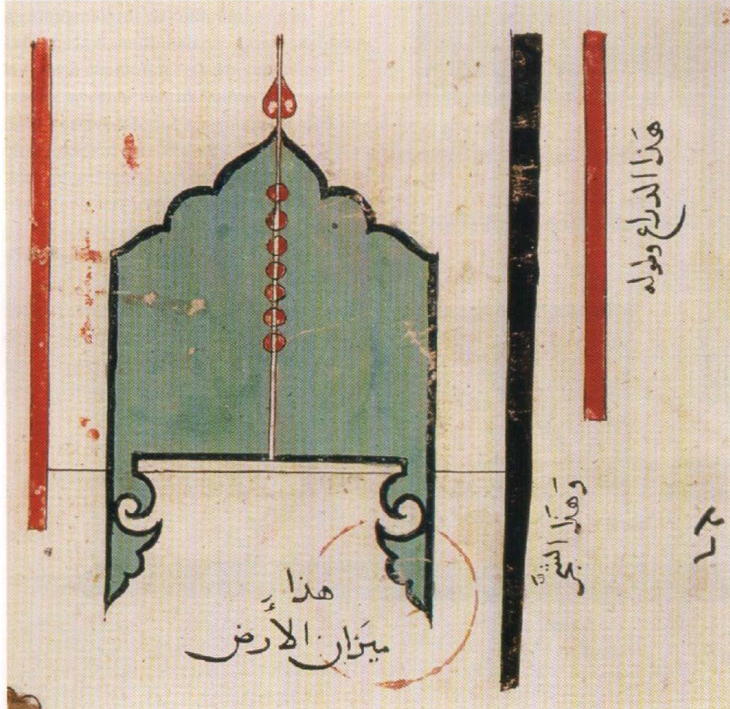 هَذا الدراع وطوله
وَهَذَا
هذا
ميَزان الأَرض